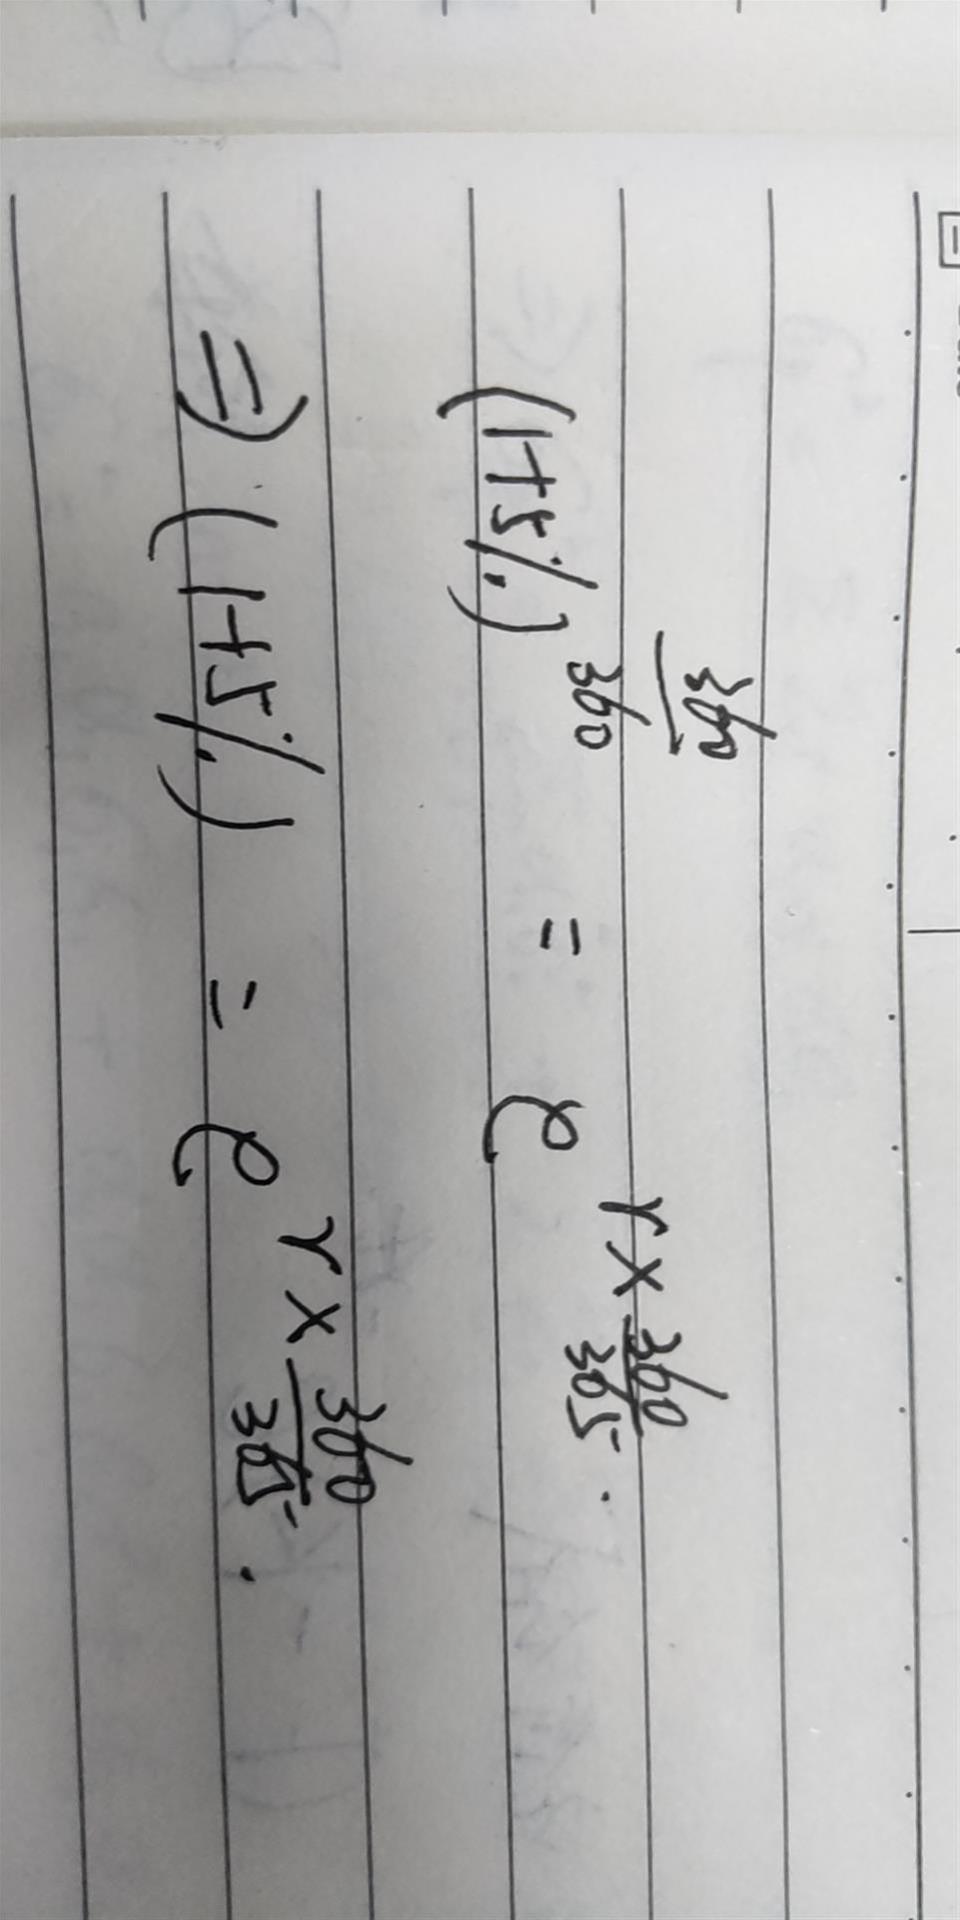 (1+5%)^(360/360) = e^(r×360/365).
⇒ (1+5%) = e^(r×360/365).